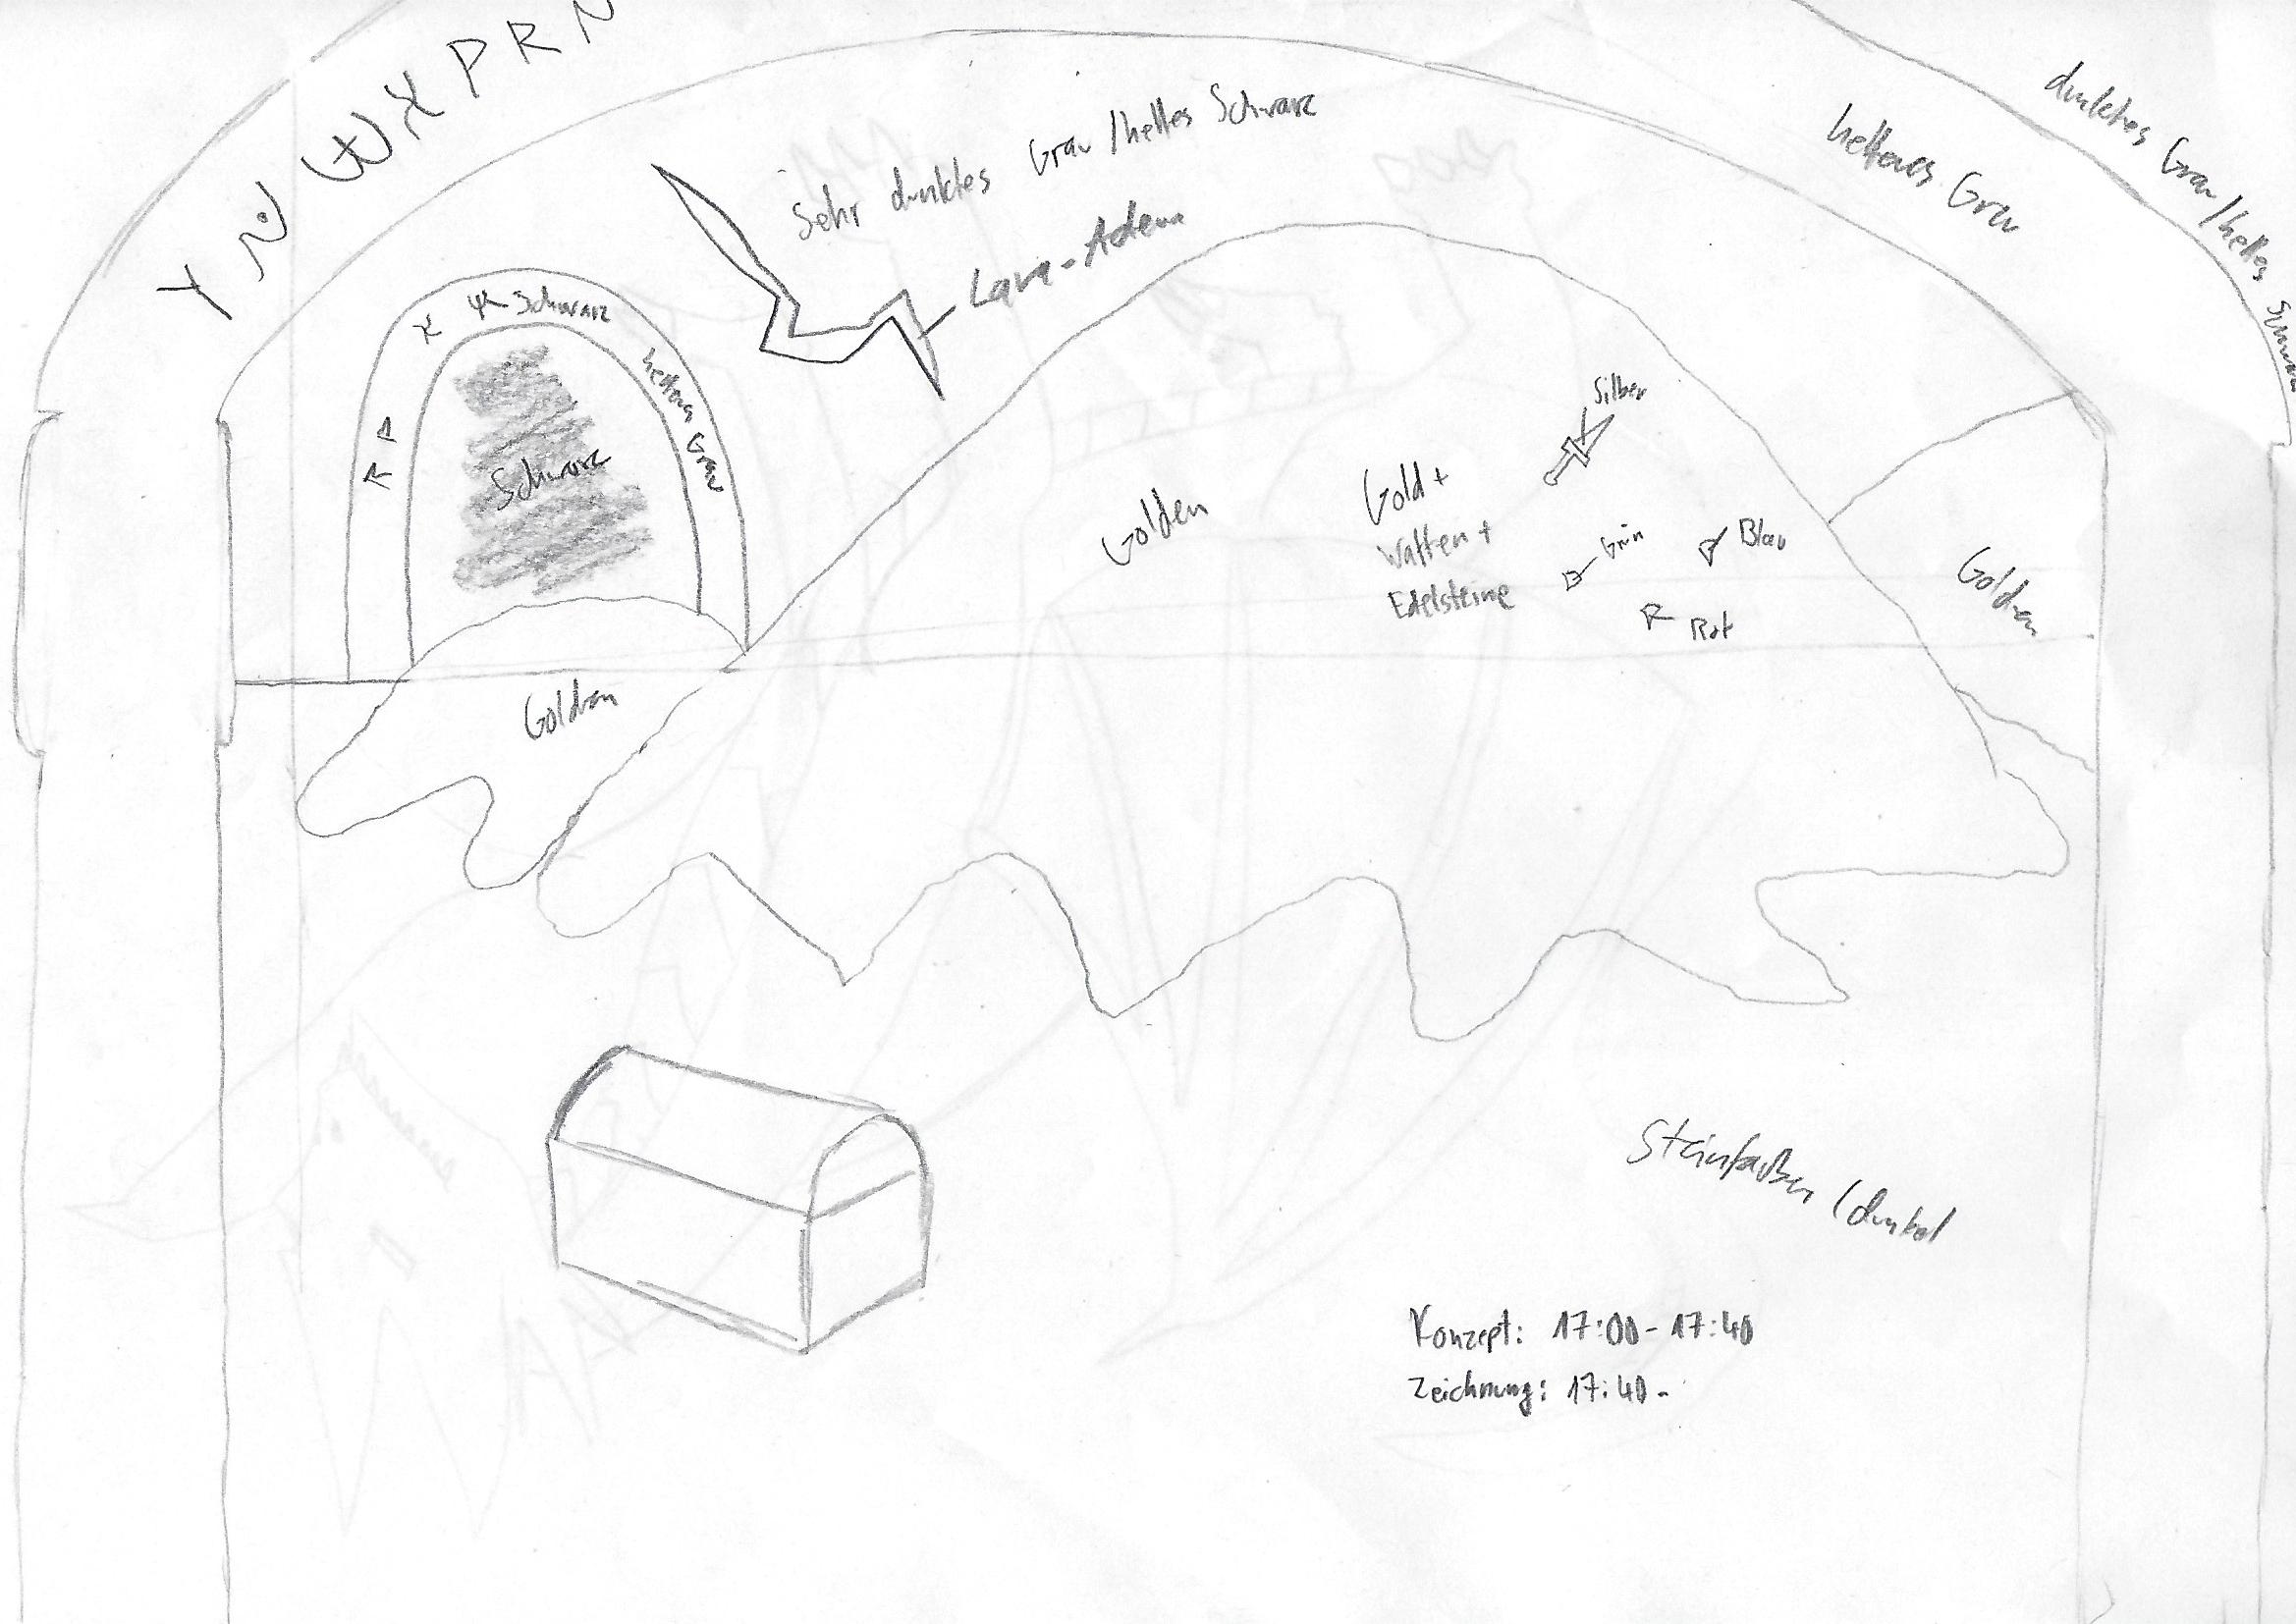 PRN
dunkles Grau/helles Schwarz
helleres Grau
Sehr dunkles Grau/helles Schwarz
Lava-Adern
Schwarz
helleres Grau
Schwarz
Silber
Golden
Gold+
Waffen+
Edelsteine
Grün
Blau
Rot
Golden
Golden
Steinfarben (dunkel
Konzept: 17:00-17:40
Zeichnung: 17:40-